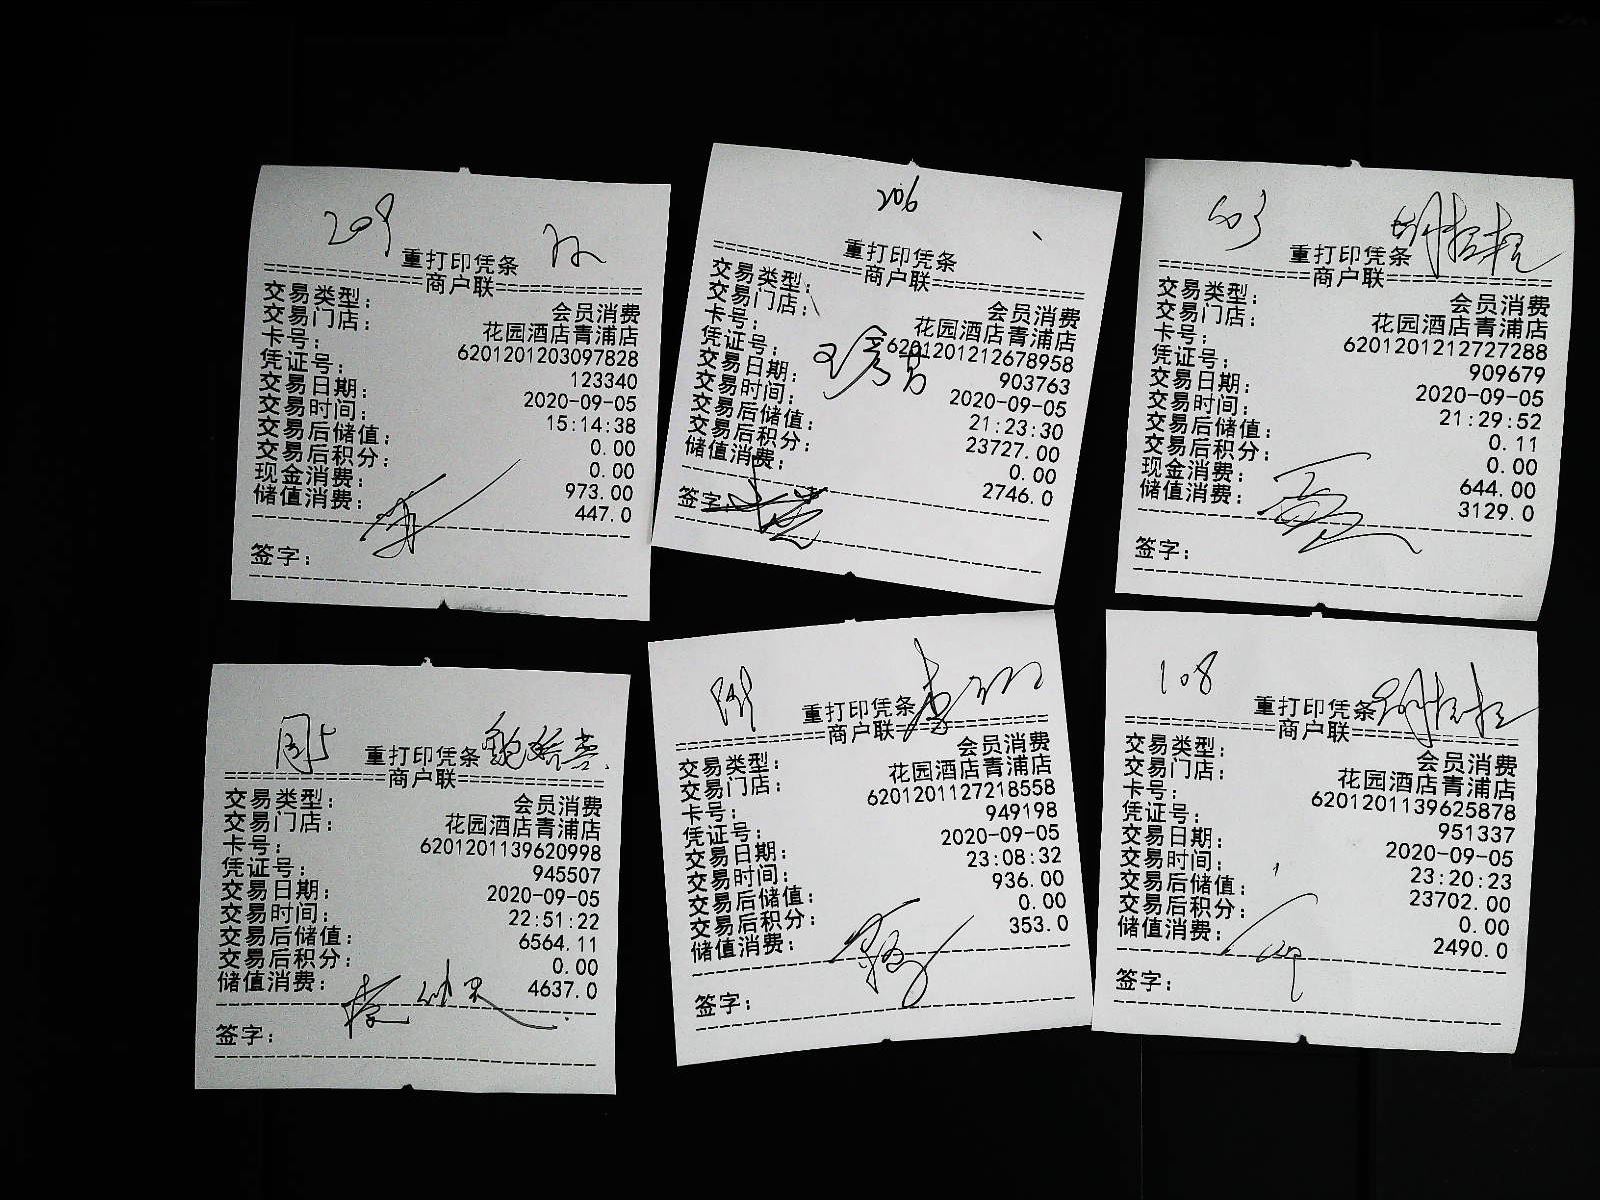 209
重打印凭条
商户联
交易类型： 会员消费
交易门店： 花园酒店青浦店
卡号： 6201201203097828
凭证号： 123340
交易日期： 2020-09-05
交易时间： 15:14:38
交易后储值： 0.00
交易后积分： 0.00
现金消费： 973.00
储值消费： 447.0
签字：
206
重打印凭条
商户联
交易类型： 会员消费
交易门店： 花园酒店青浦店
卡号： 6201201212678958
凭证号： 903763
交易日期： 2020-09-05
交易时间： 21:23:30
交易后储值： 23727.00
交易后积分： 0.00
储值消费： 2746.0
签字：
603
重打印凭条
商户联
交易类型： 会员消费
交易门店： 花园酒店青浦店
卡号： 6201201212727288
凭证号： 909679
交易日期： 2020-09-05
交易时间： 21:29:52
交易后储值： 0.11
交易后积分： 0.00
现金消费： 644.00
储值消费： 3129.0
签字：
重打印凭条
商户联
交易类型： 会员消费
交易门店： 花园酒店青浦店
卡号： 6201201139620998
凭证号： 945507
交易日期： 2020-09-05
交易时间： 22:51:22
交易后储值： 6564.11
交易后积分： 0.00
储值消费： 4637.0
签字：
重打印凭条
商户联
交易类型： 会员消费
交易门店： 花园酒店青浦店
卡号： 6201201127218558
凭证号： 949198
交易日期： 2020-09-05
交易时间： 23:08:32
交易后储值： 936.00
交易后积分： 0.00
储值消费： 353.0
签字：
108
重打印凭条
商户联
交易类型： 会员消费
交易门店： 花园酒店青浦店
卡号： 6201201139625878
凭证号： 951337
交易日期： 2020-09-05
交易时间： 23:20:23
交易后储值： 23702.00
交易后积分： 0.00
储值消费： 2490.0
签字：